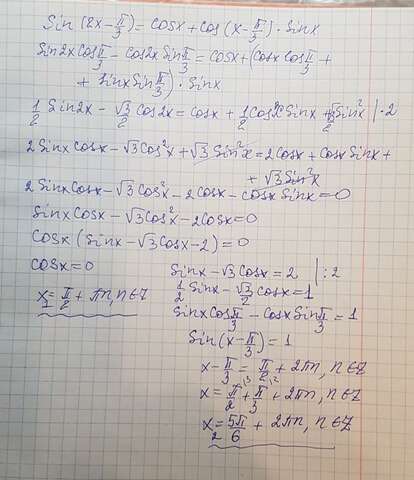 Sin (2x - π/3) = cosx + cos (x - π/3) · Sinx
Sin2x cos π/3 - cos2x Sin π/3 = cosx + (cosx cos π/3 +
+ Sinx Sin π/3) · Sinx
1/2 Sin2x - √3/2 cos2x = cosx + 1/2 cosx Sinx + √3/2 Sin²x | ·2
2Sinx cosx - √3cos²x + √3 Sin²x = 2cosx + cosx Sinx +
+ √3Sin²x
2Sinx cosx - √3cos²x - 2cosx - cosx Sinx = 0
Sinx cosx - √3cos²x - 2cosx = 0
cosx (Sinx - √3cosx - 2) = 0
cosx = 0
x₁ = π/2 + πn, n∈Z
Sinx - √3cosx = 2 | :2
1/2 Sinx - √3/2 cosx = 1
Sinx cos π/3 - cosx Sin π/3 = 1
Sin (x - π/3) = 1
x - π/3 = π/2 + 2πn, n∈Z
x = π/2 + π/3 + 2πn, n∈Z
x₂ = 5π/6 + 2πn, n∈Z